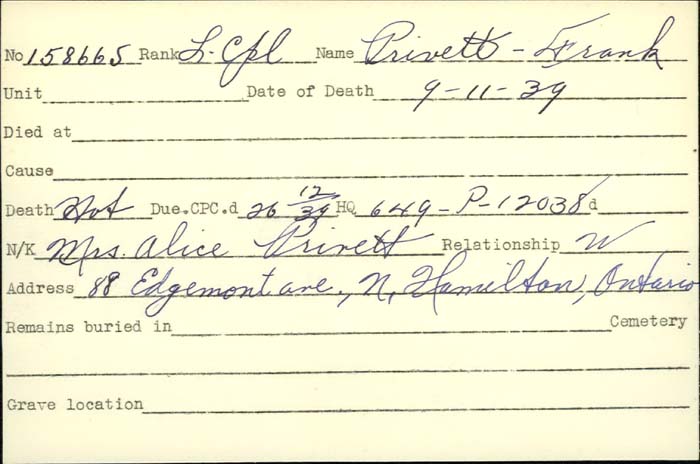 No 158665 Rank L. Cpl Name Privett - Frank
Unit Date of Death 9-11-39
Died at
Cause
Death Not Due. CPC. d 26 12/39 HQ 649-P-12038 d
N/K Mrs. Alice Privett Relationship W
Address 88 Edgemont ave., N, Hamilton, Ontario
Remains buried in Cemetery
Grave location